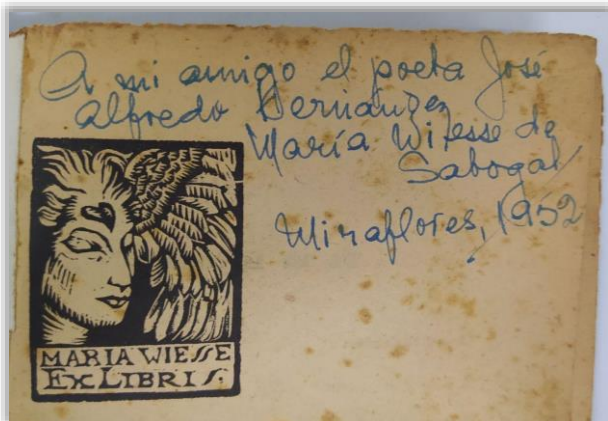 A mi amigo el poeta José
Alfredo Hernández
María Wiesse de
Sabogal
Miraflores, 1952
MARIA WIESSE
EX LIBRIS.